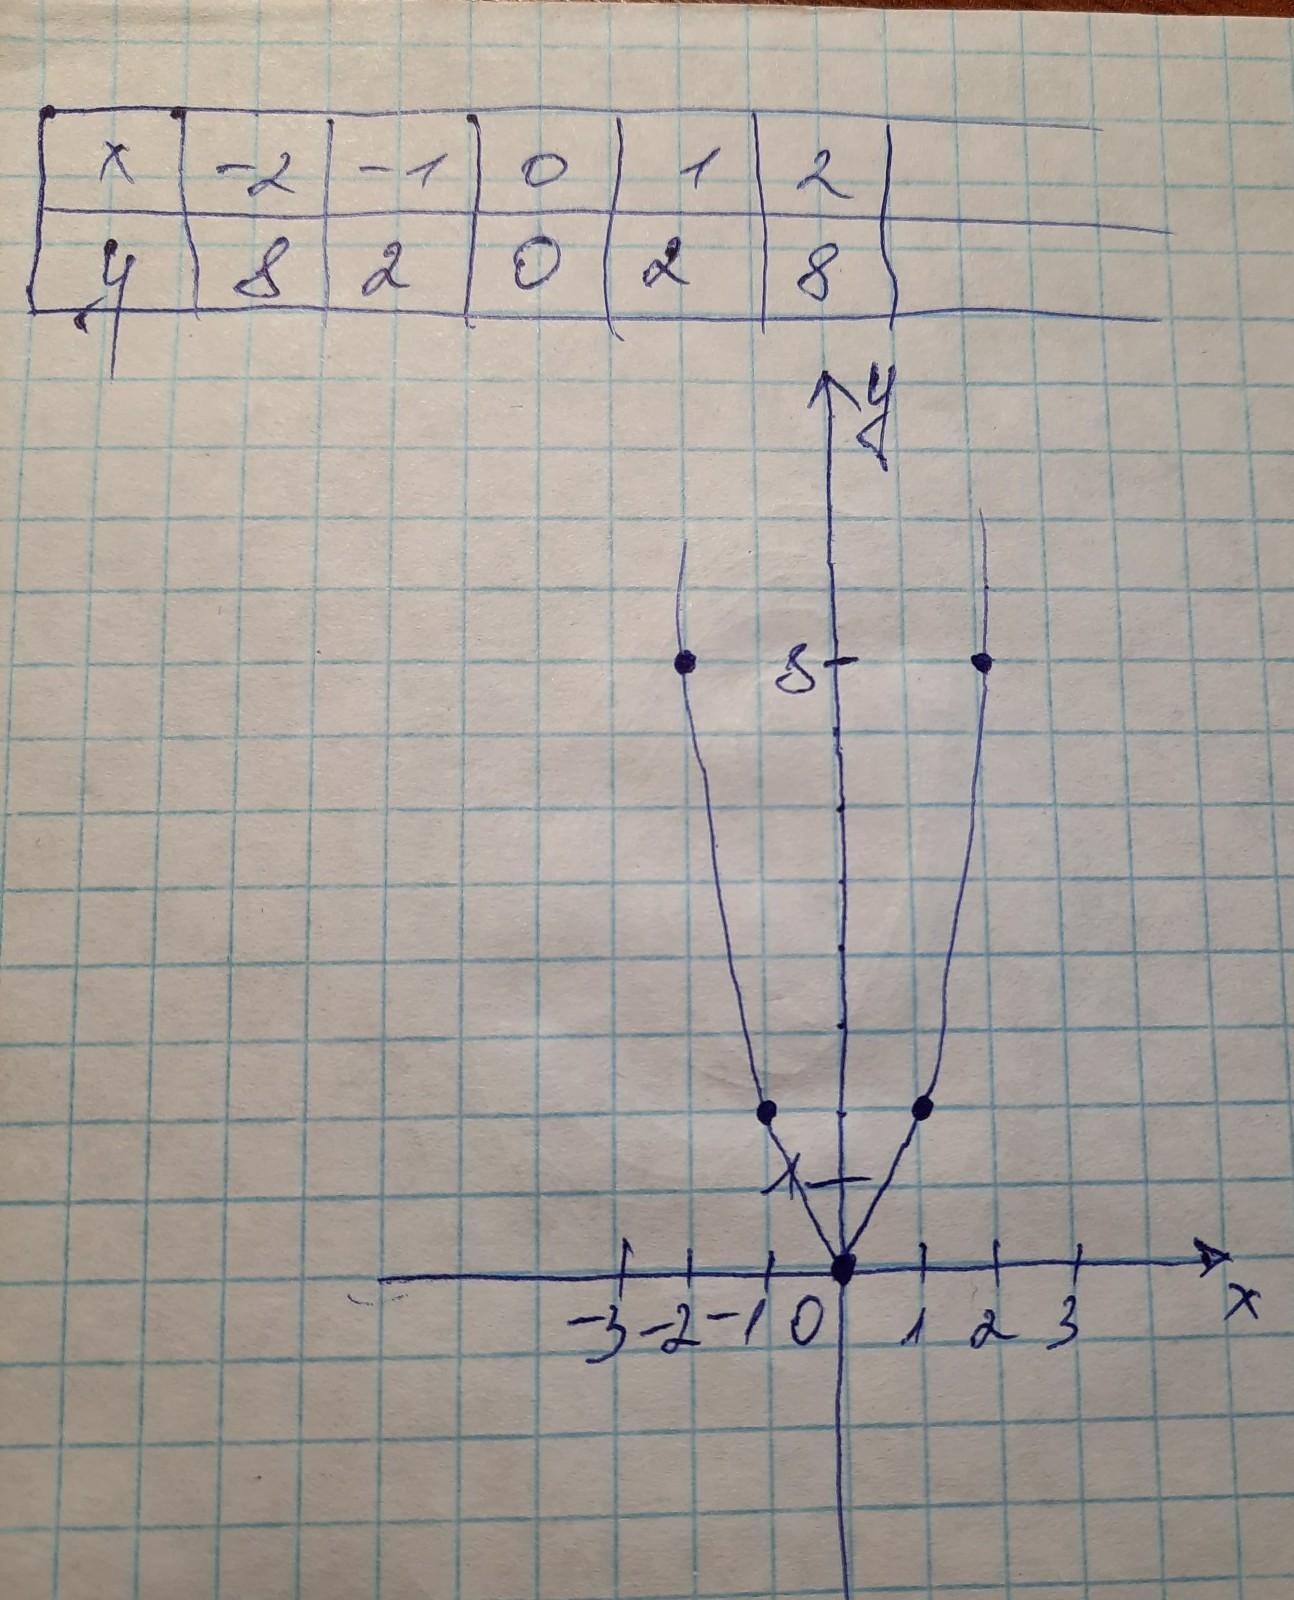 x -2 -1 0 1 2
y 8 2 0 2 8
y
8
1
-3 -2 -1 0 1 2 3
x